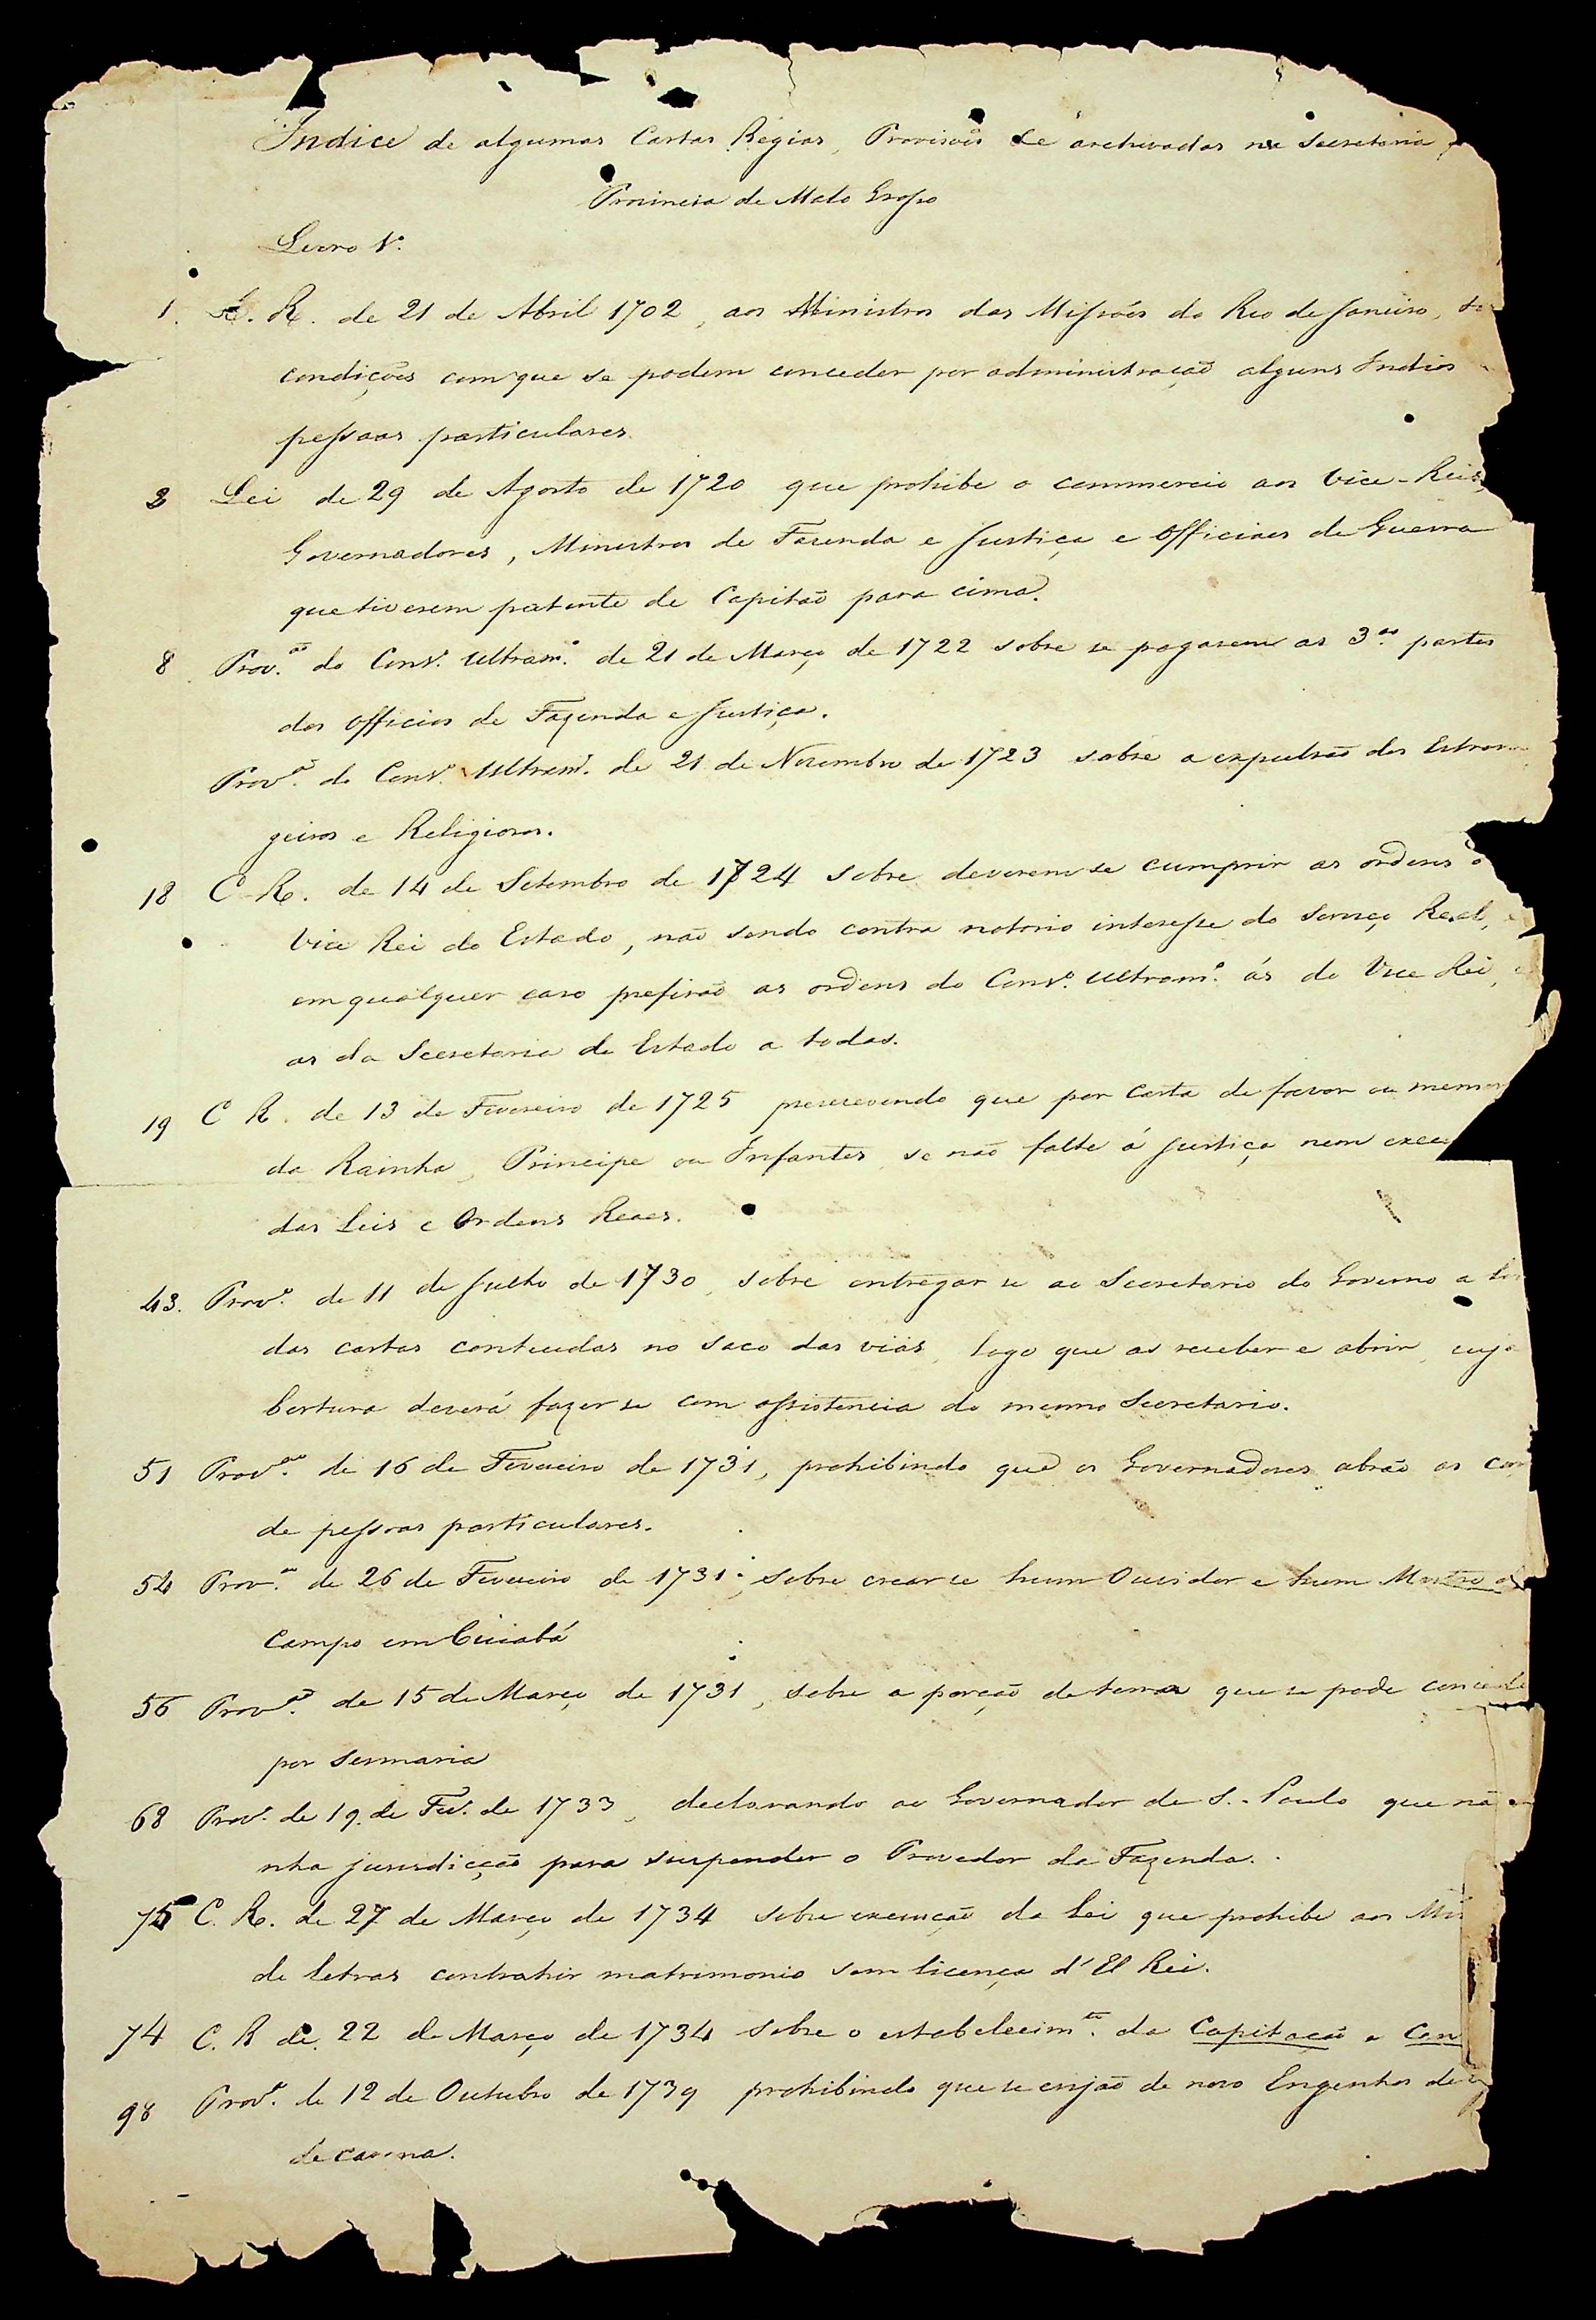 Indice de algumas Cartas Regias, Provisões &c archivadas na Secretaria
Provincia de Mato Grosso
Livro 1º.
1. C. R. de 21 de Abril 1702, aos Ministros das Missões do Rio de Janeiro,
condições com que se podem conceder por administração alguns Indios
pessoas particulares.
3 Lei de 29 de Agosto de 1720 que prohibe o commercio aos Vice-Reis,
Governadores, Ministros de Fazenda e Justiça e Officiaes de Guerra
que tiverem patente de Capitão para cima.
8 Prov.ão do Cons.º Ultram.º de 21 de Março de 1722 sobre se pagarem as 3.as partes
dos officios de Fazenda e Justiça.
Prov.ão do Cons.º Ultram.º de 21 de Novembro de 1723 sobre a expulsão dos Estran
geiros e Religiosos.
18 C. R. de 14 de Setembro de 1724 sobre deverem se cumprir as ordens
Vice Rei do Estado, não sendo contra notorio interesse do Serviço Real,
em qualquer caso prefirão as ordens do Cons.º Ultram.º ás do Vice Rei,
as da Secretaria de Estado a todas.
19 C R. de 13 de Fevereiro de 1725 prescrevendo que por Carta de favor ou
da Rainha, Principe ou Infantes, se não falte á Justiça nem
das Leis e Ordens Reaes.
43. Prov.ão de 11 de Julho de 1730, sobre entregar se ao Secretario do Governo a
das cartas conteudas no saco das vias, logo que as receber e abrir, cuja
bertura deverá fazer se com assistencia do mesmo Secretario.
51 Prov.ão de 16 de Fevereiro de 1731, prohibindo que os Governadores abrão as
de pessoas particulares.
54 Prov.ão de 26 de Fevereiro de 1731, sobre crear se hum Ouvidor e hum Mestre
Campo em Cuiabá
56 Prov.ão de 15 de Março de 1731, sobre a porção de terra que se pode
por sesmaria
68 Prov.ão de 19 de Fev.º de 1733, declarando ao Governador de S. Paulo que não
nha jurisdicção para suspender o Provedor da Fazenda.
75 C. R. de 27 de Março de 1734 sobre execução da Lei que prohibe aos
de letras contrahir matrimonio sem licença d'El Rei.
74 C. R de 22 de Março de 1734 sobre o estabelecim.to da Capitação e
98 Prov.ão de 12 de Outubro de 1739 prohibindo que se erijão de novo Engenhos de
de canna.